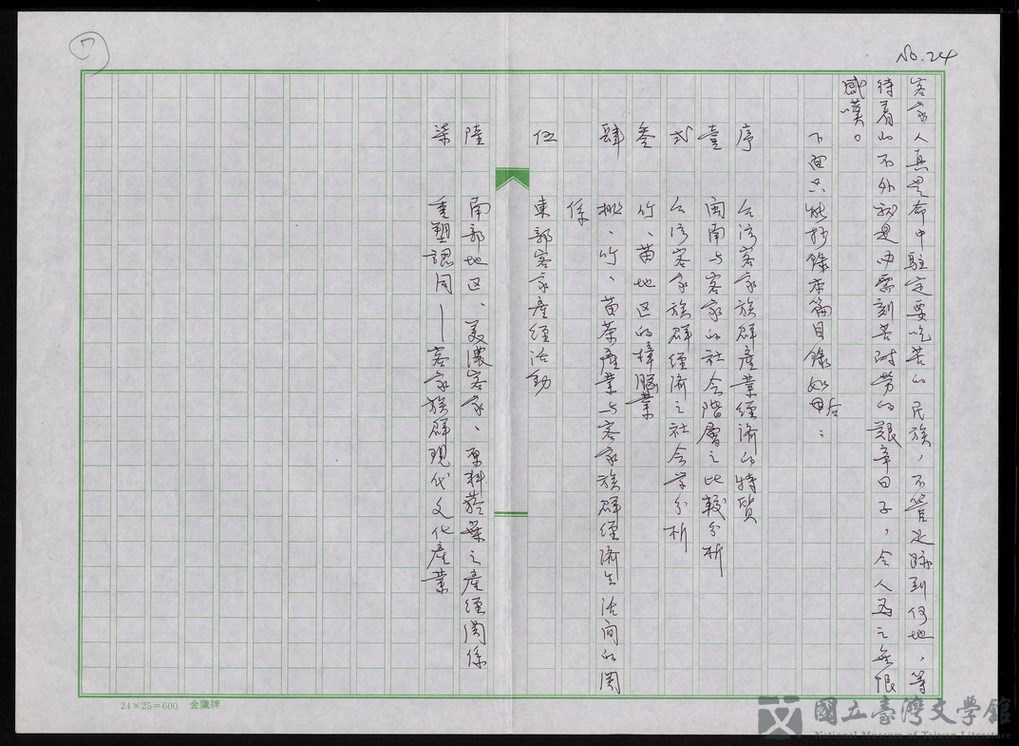 No. 24
7
客家人真是命中駐定要吃苦的民族，不管足跡到何地，等
待着的不外就是必需刻苦耐劳的艱辛日子，令人為之無限
感嘆。
下面只能抄錄本篇目錄如后：
序　台湾客家族群產業經濟的特質
壹　闽南与客家的社会階層之比較分析
弍　台湾客家族群經濟之社会学分析
叁　竹、苗地区的樟腦業
肆　桃、竹、苗茶產業与客家族群經濟生活间的関
係
伍　東部客家產經活動
陸　南部地区、美濃客家、原料菸葉之產經関係
柒　重塑認同——客家族群現代文化產業
24×25=600　金鷹牌
國立臺灣文學館
National Museum of Taiwan Literature